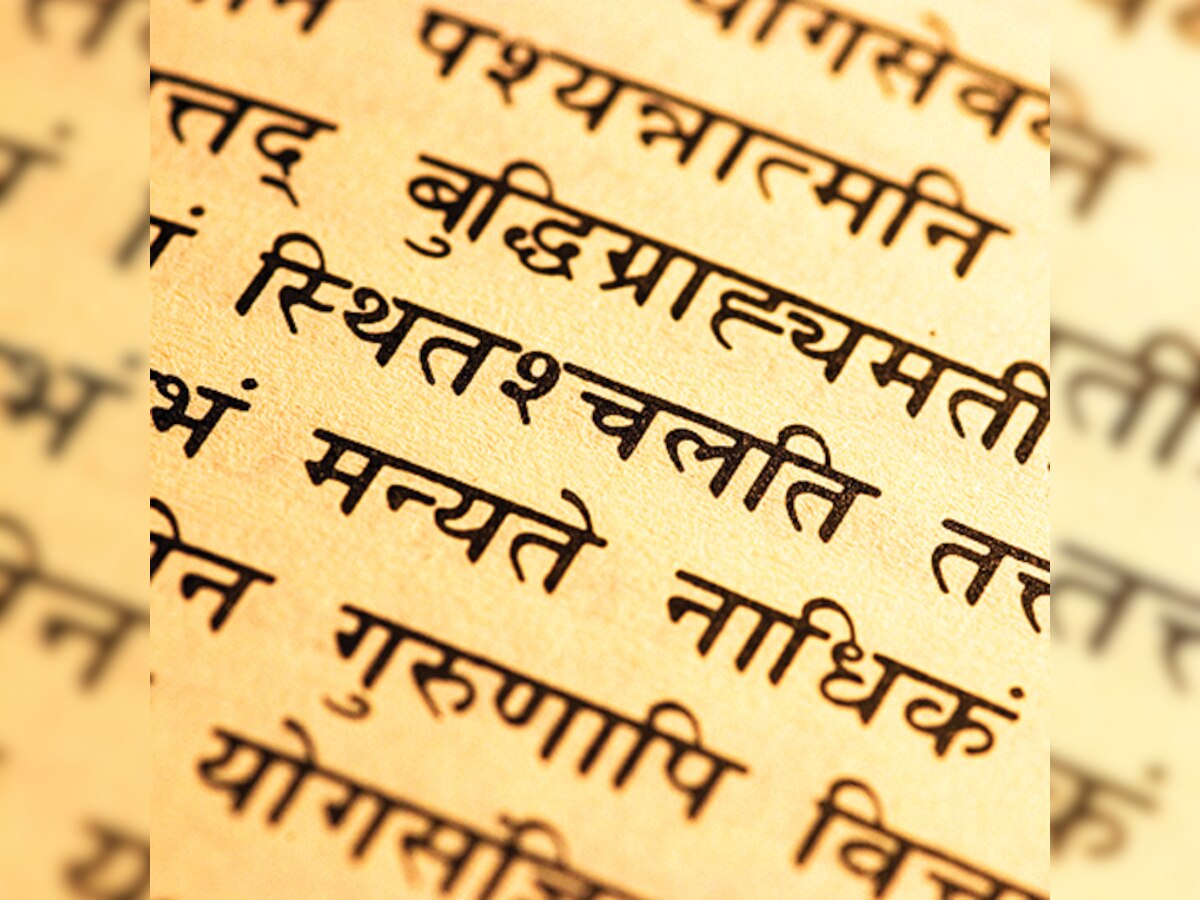 योगसेव
पश्यन्नात्मनि
त्तद् बुद्धिग्राह्यमती
स्थितश्चलति तत्त
भं मन्यते नाधिकं
न गुरुणापि विच
योगसंज्ञि